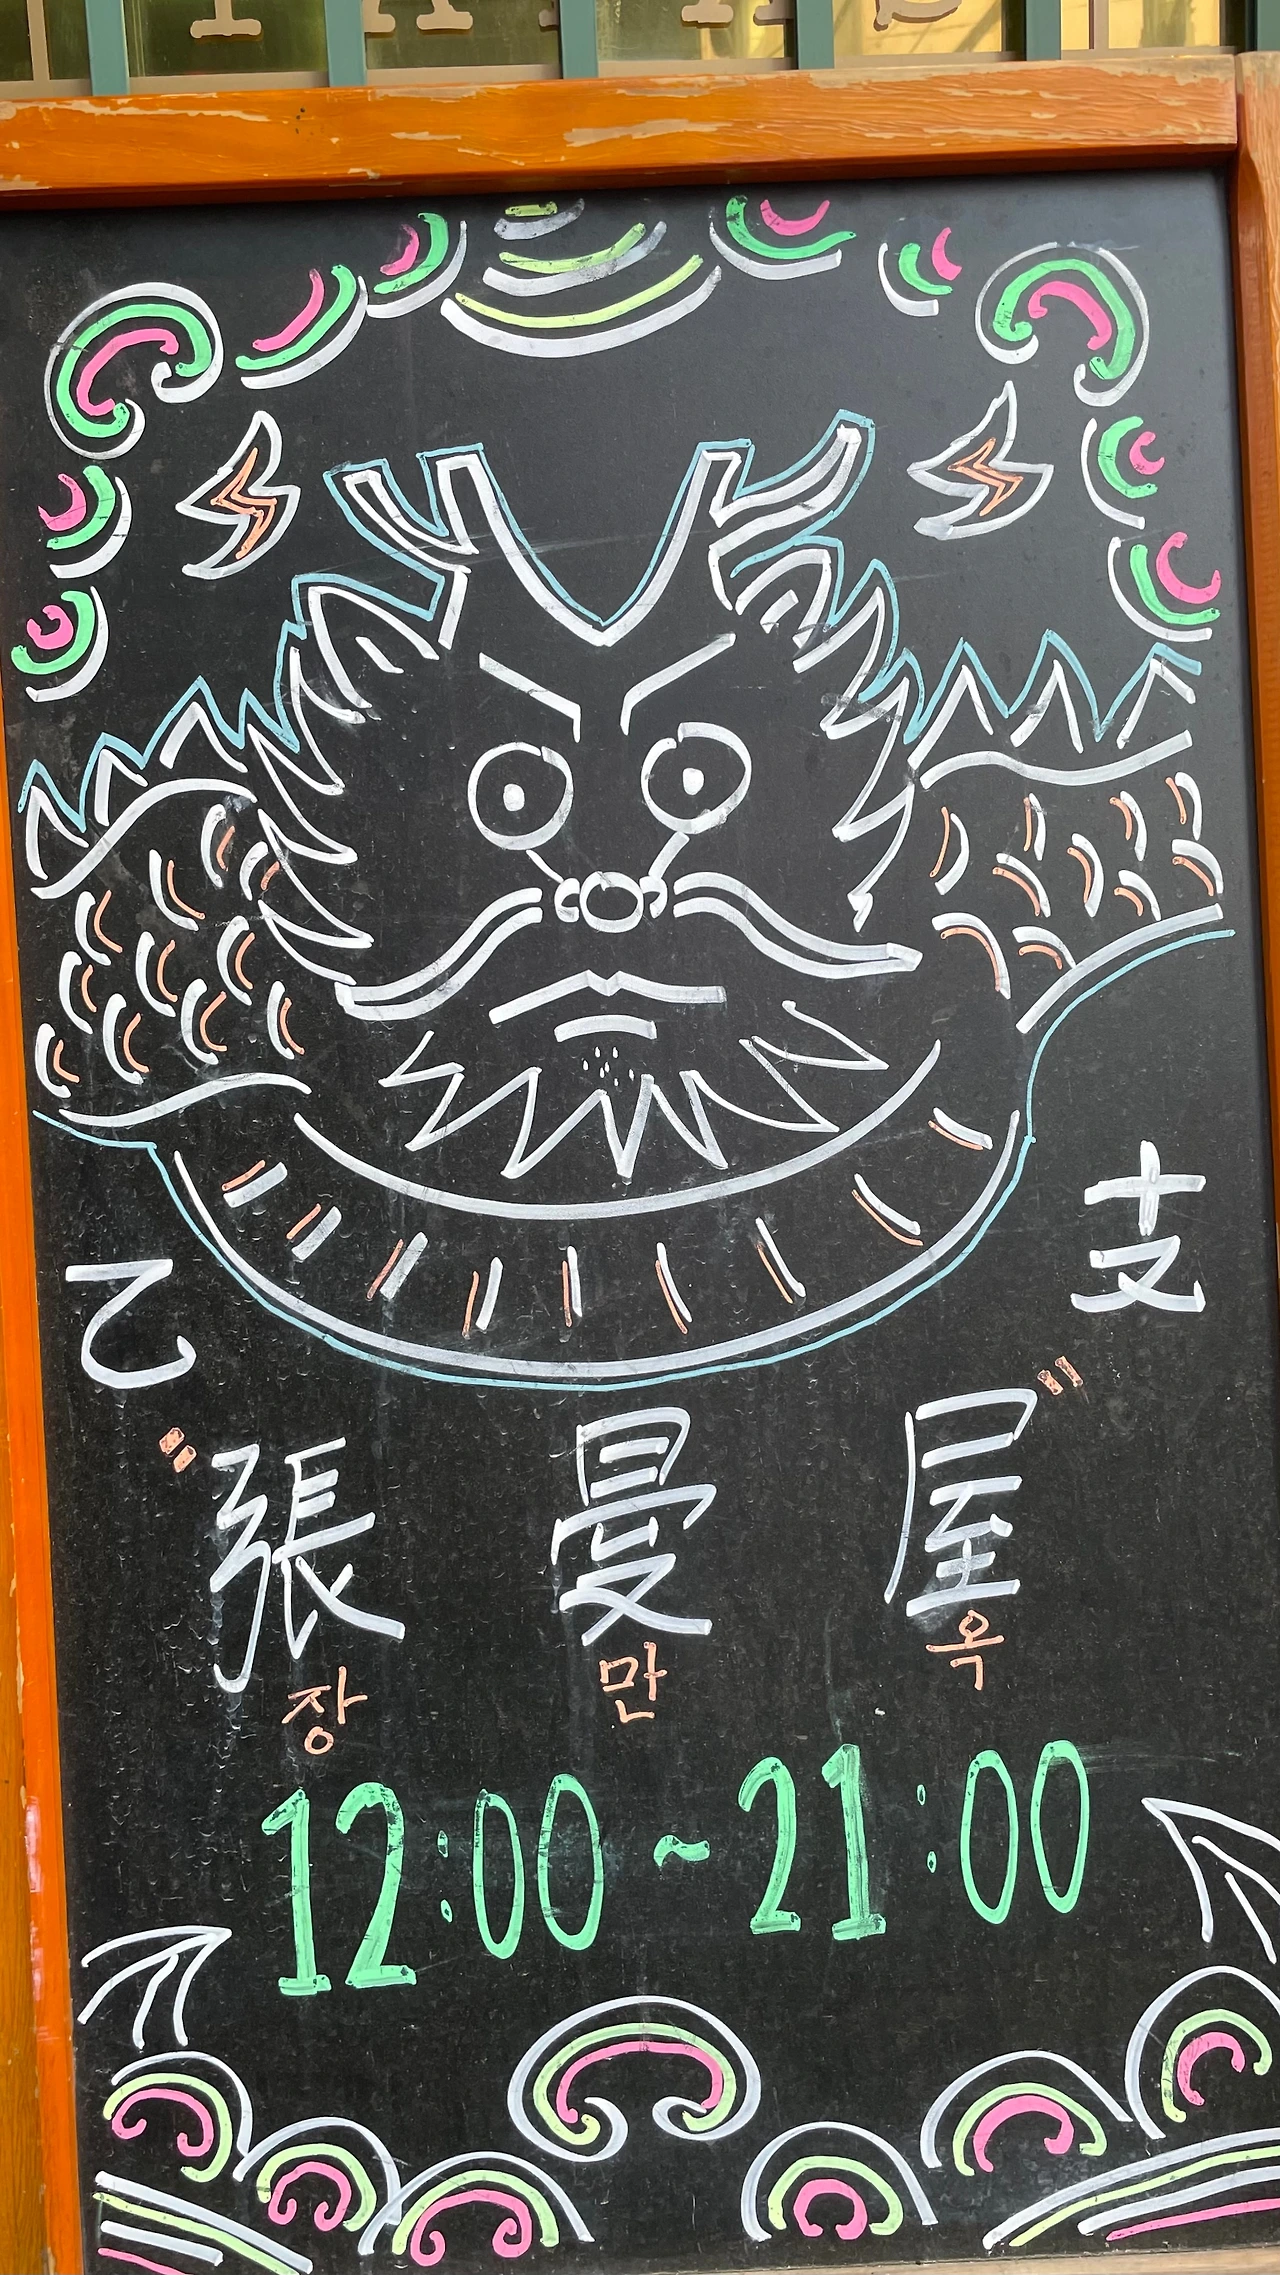 乙 支
"張曼屋"
장 만 옥
12:00 ~ 21:00